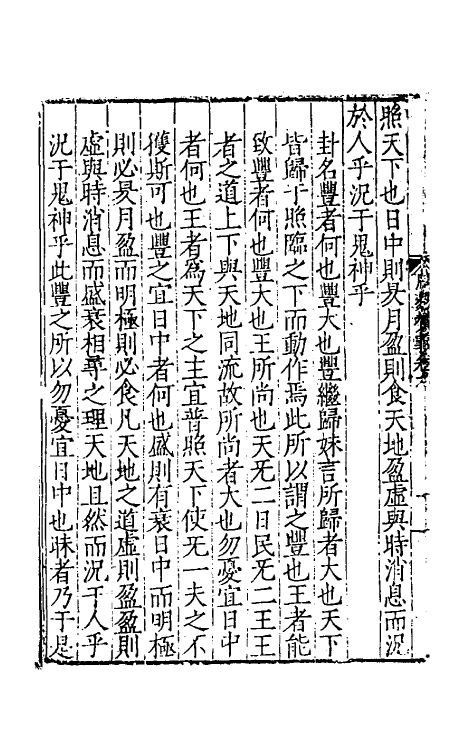 照天下也日中則昃月盈則食天地盈虛與時消息而況
於人乎況于鬼神乎
卦名豐者何也豐大也豐繼歸妹言所歸者大也天下
皆歸于照臨之下而動作焉此所以謂之豐也王者能
致豐者何也豐大也王所尚也天旡二日民旡二王王
者之道上下與天地同流故所尚者大也勿憂宜日中
者何也王者為天下之主宜普照天下使旡一夫之不
獲斯可也豐之宜日中者何也盛則有衰日中而明極
則必昃月盈而明極則必食凡天地之道虛則盈盈則
虛與時消息而盛衰相尋之理天地且然而況于人乎
況于鬼神乎此豐之所以勿憂宜日中也昧者乃于是